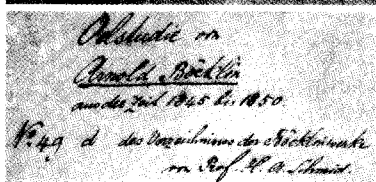 Oelstudie von
Arnold Böcklin
aus der Zeit 1845 bis 1850.
No. 49 d des Verzeichnisses der Böcklinwerke
von Prof. H. A. Schmid.